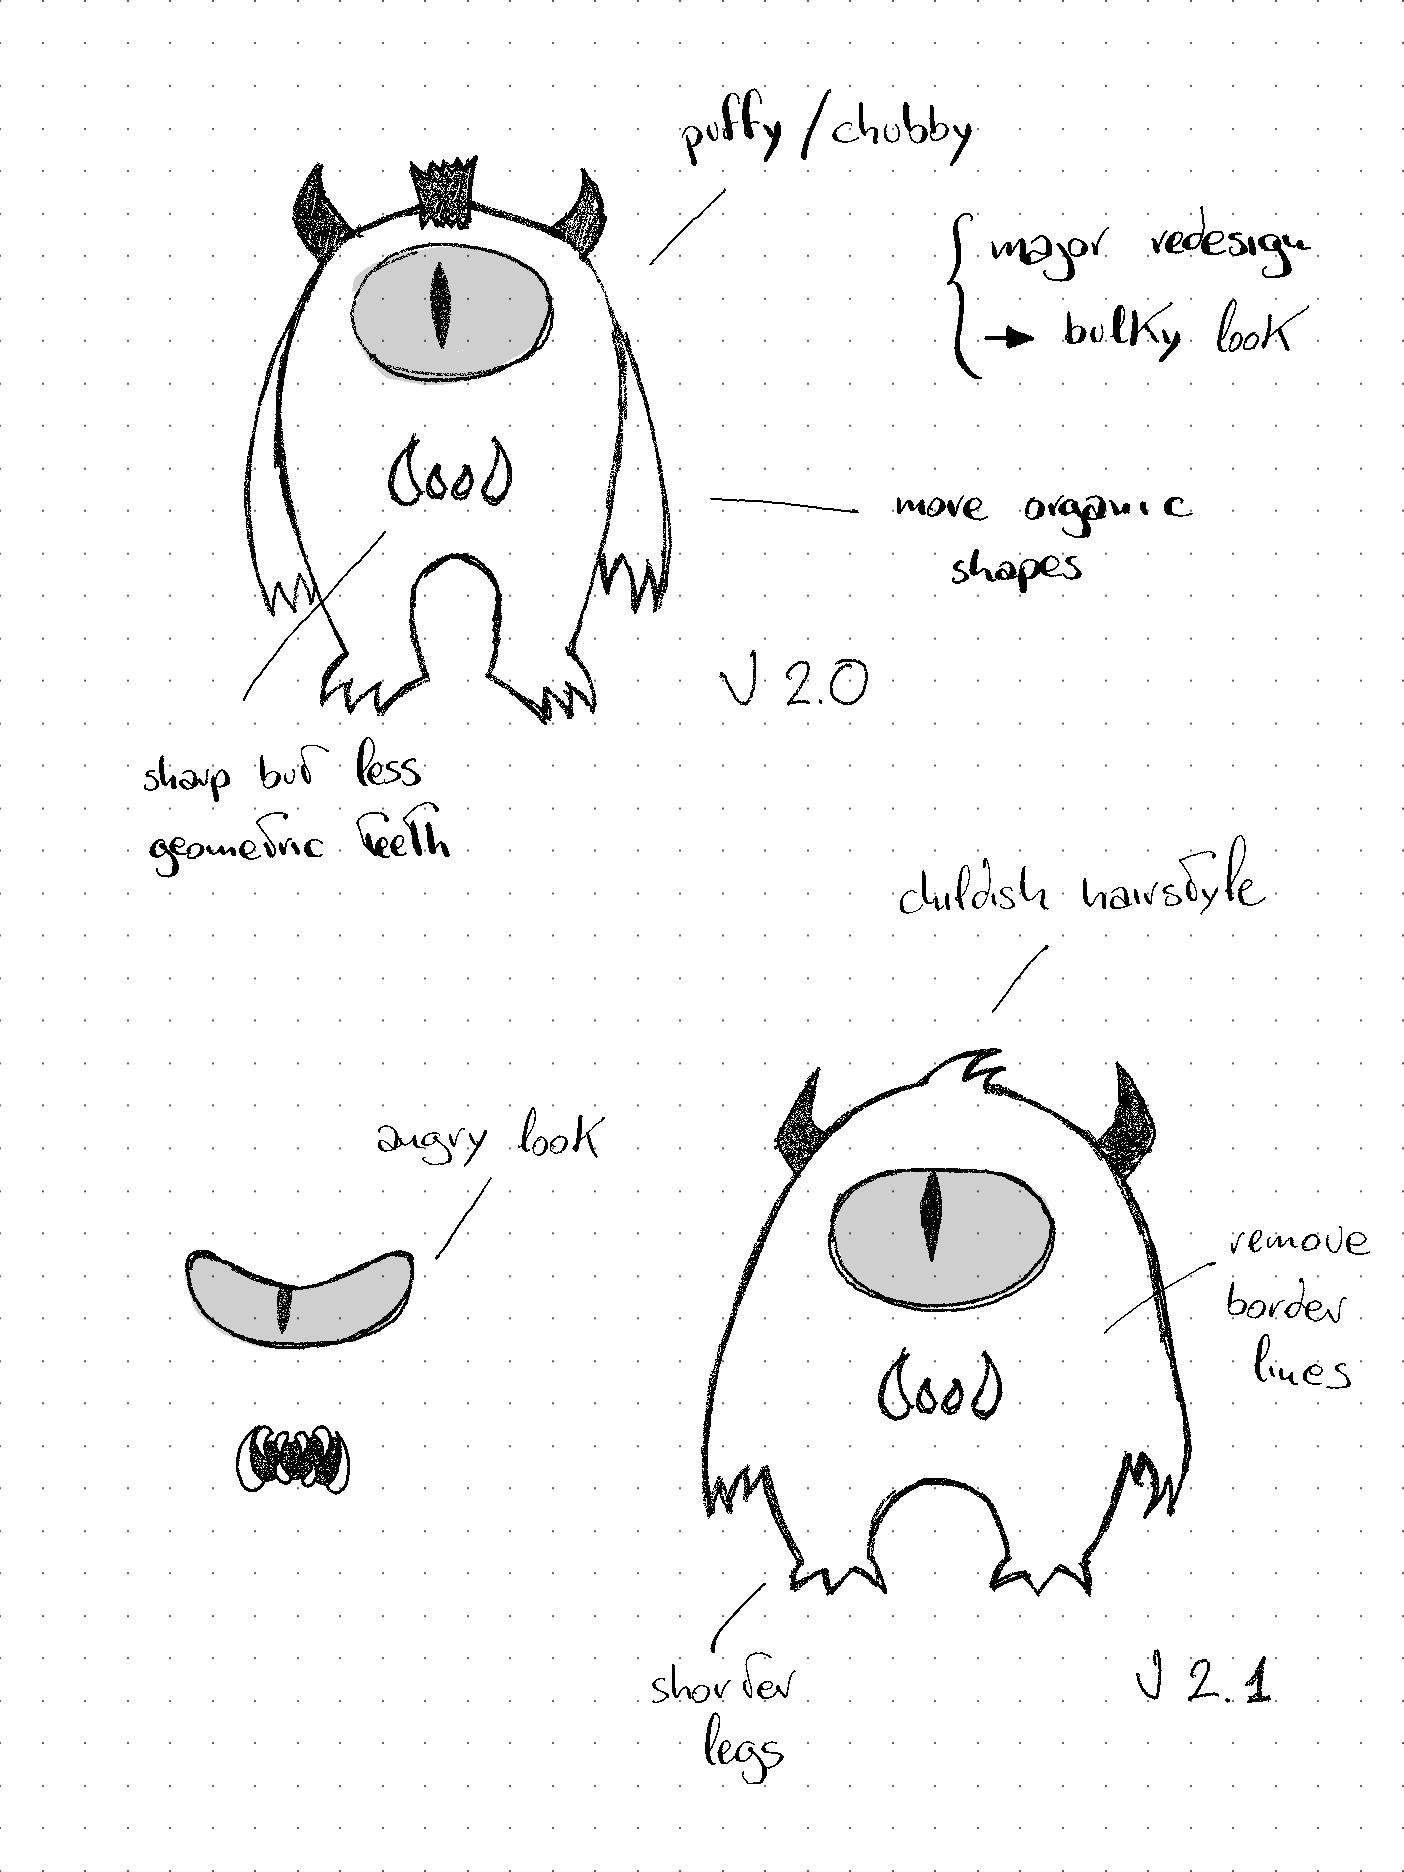 puffy / chubby
major redesign
→ bulky look
more organic
shapes
V 2.0
sharp but less
geometric teeth
childish hairstyle
angry look
remove
border
lines
shorter
legs
V 2.1